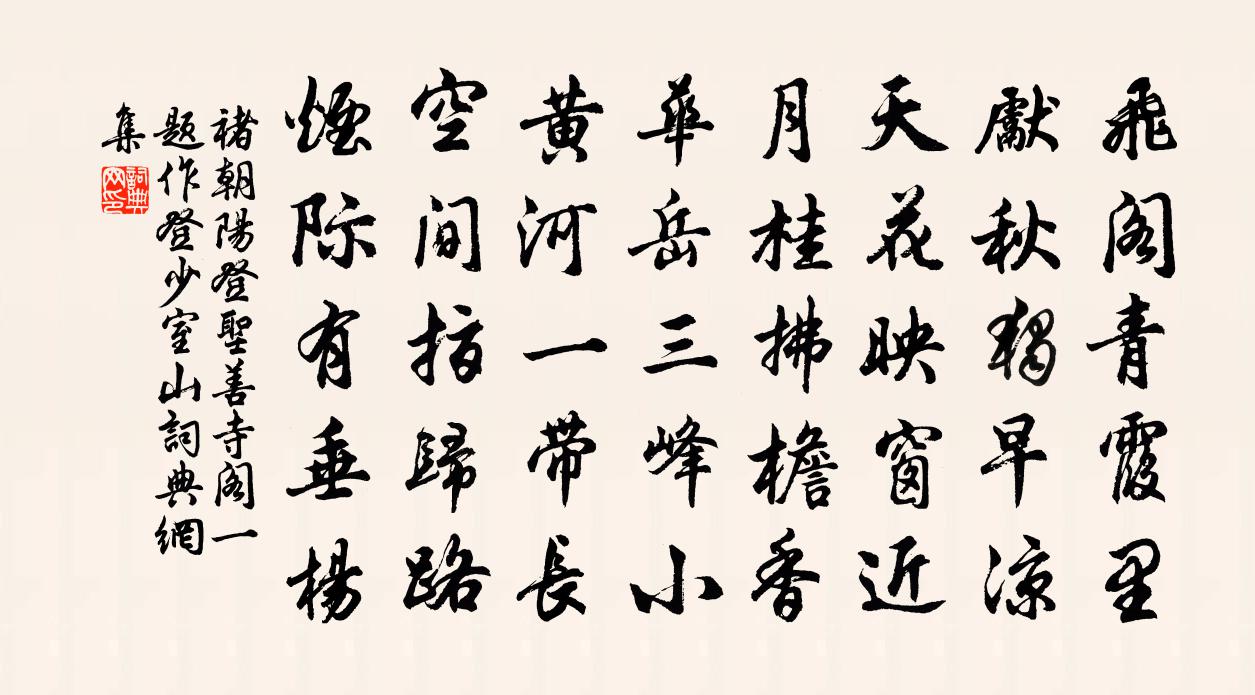 飛阁青霞里
獻秋獨早涼
天花映窗近
月桂拂檐香
華岳三峰小
黄河一带長
空间指歸路
煙际有垂楊
褚朝陽登聖善寺阁一
题作登少室山詞典網
集
詞典网印